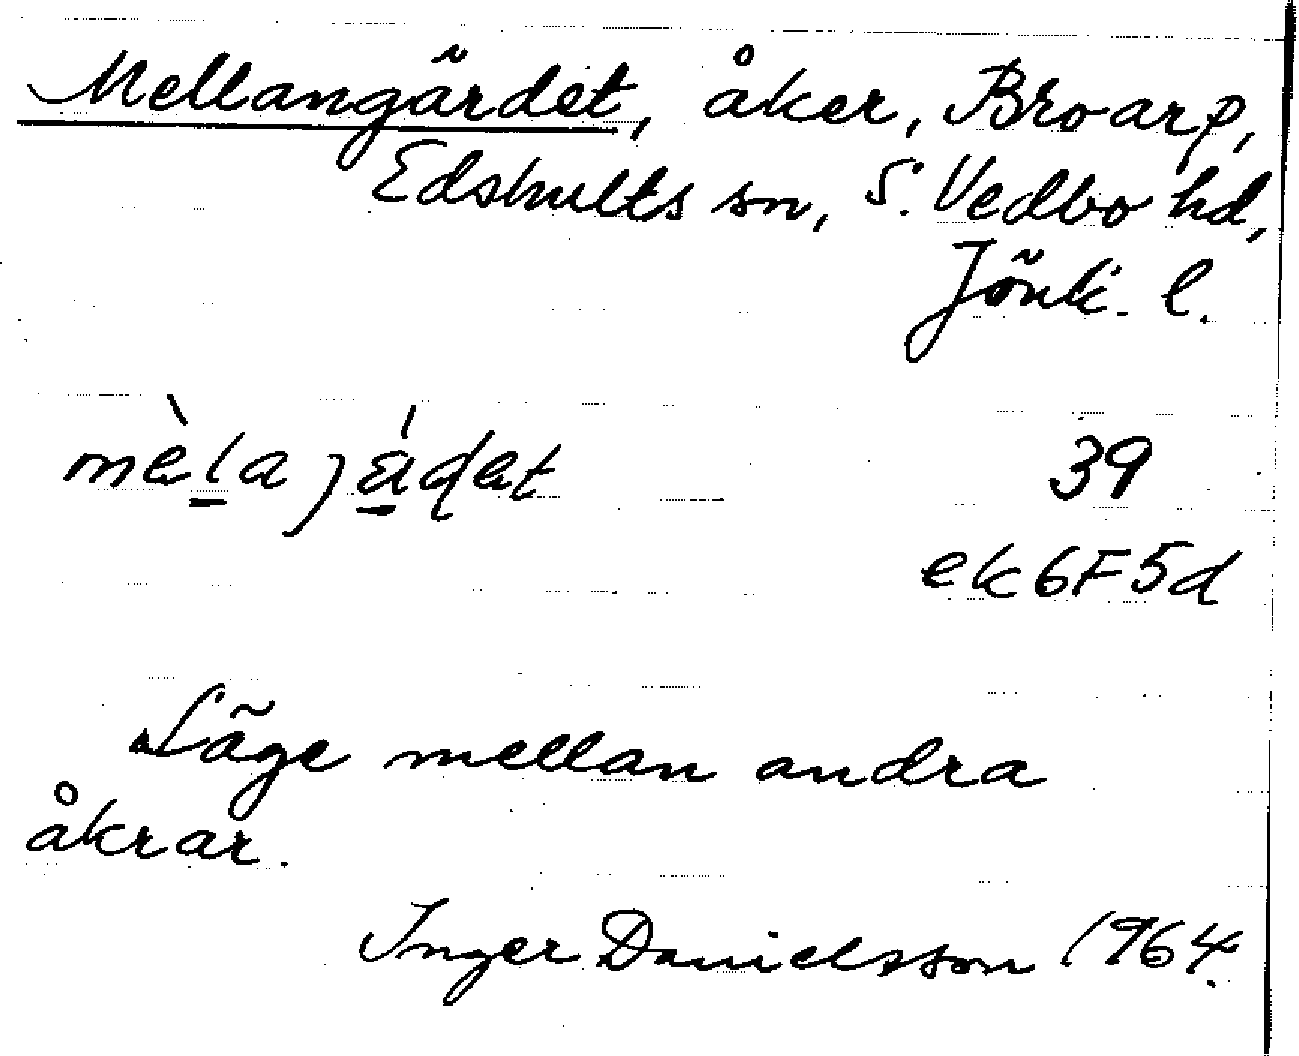 Mellangärdet, åker, Broarp,
Edshults sn, S. Vedbo hd,
Jönk. l.
mèla jádet 39
ek6F5d
Läge mellan andra
åkrar.
Inger Danielsson 1964.